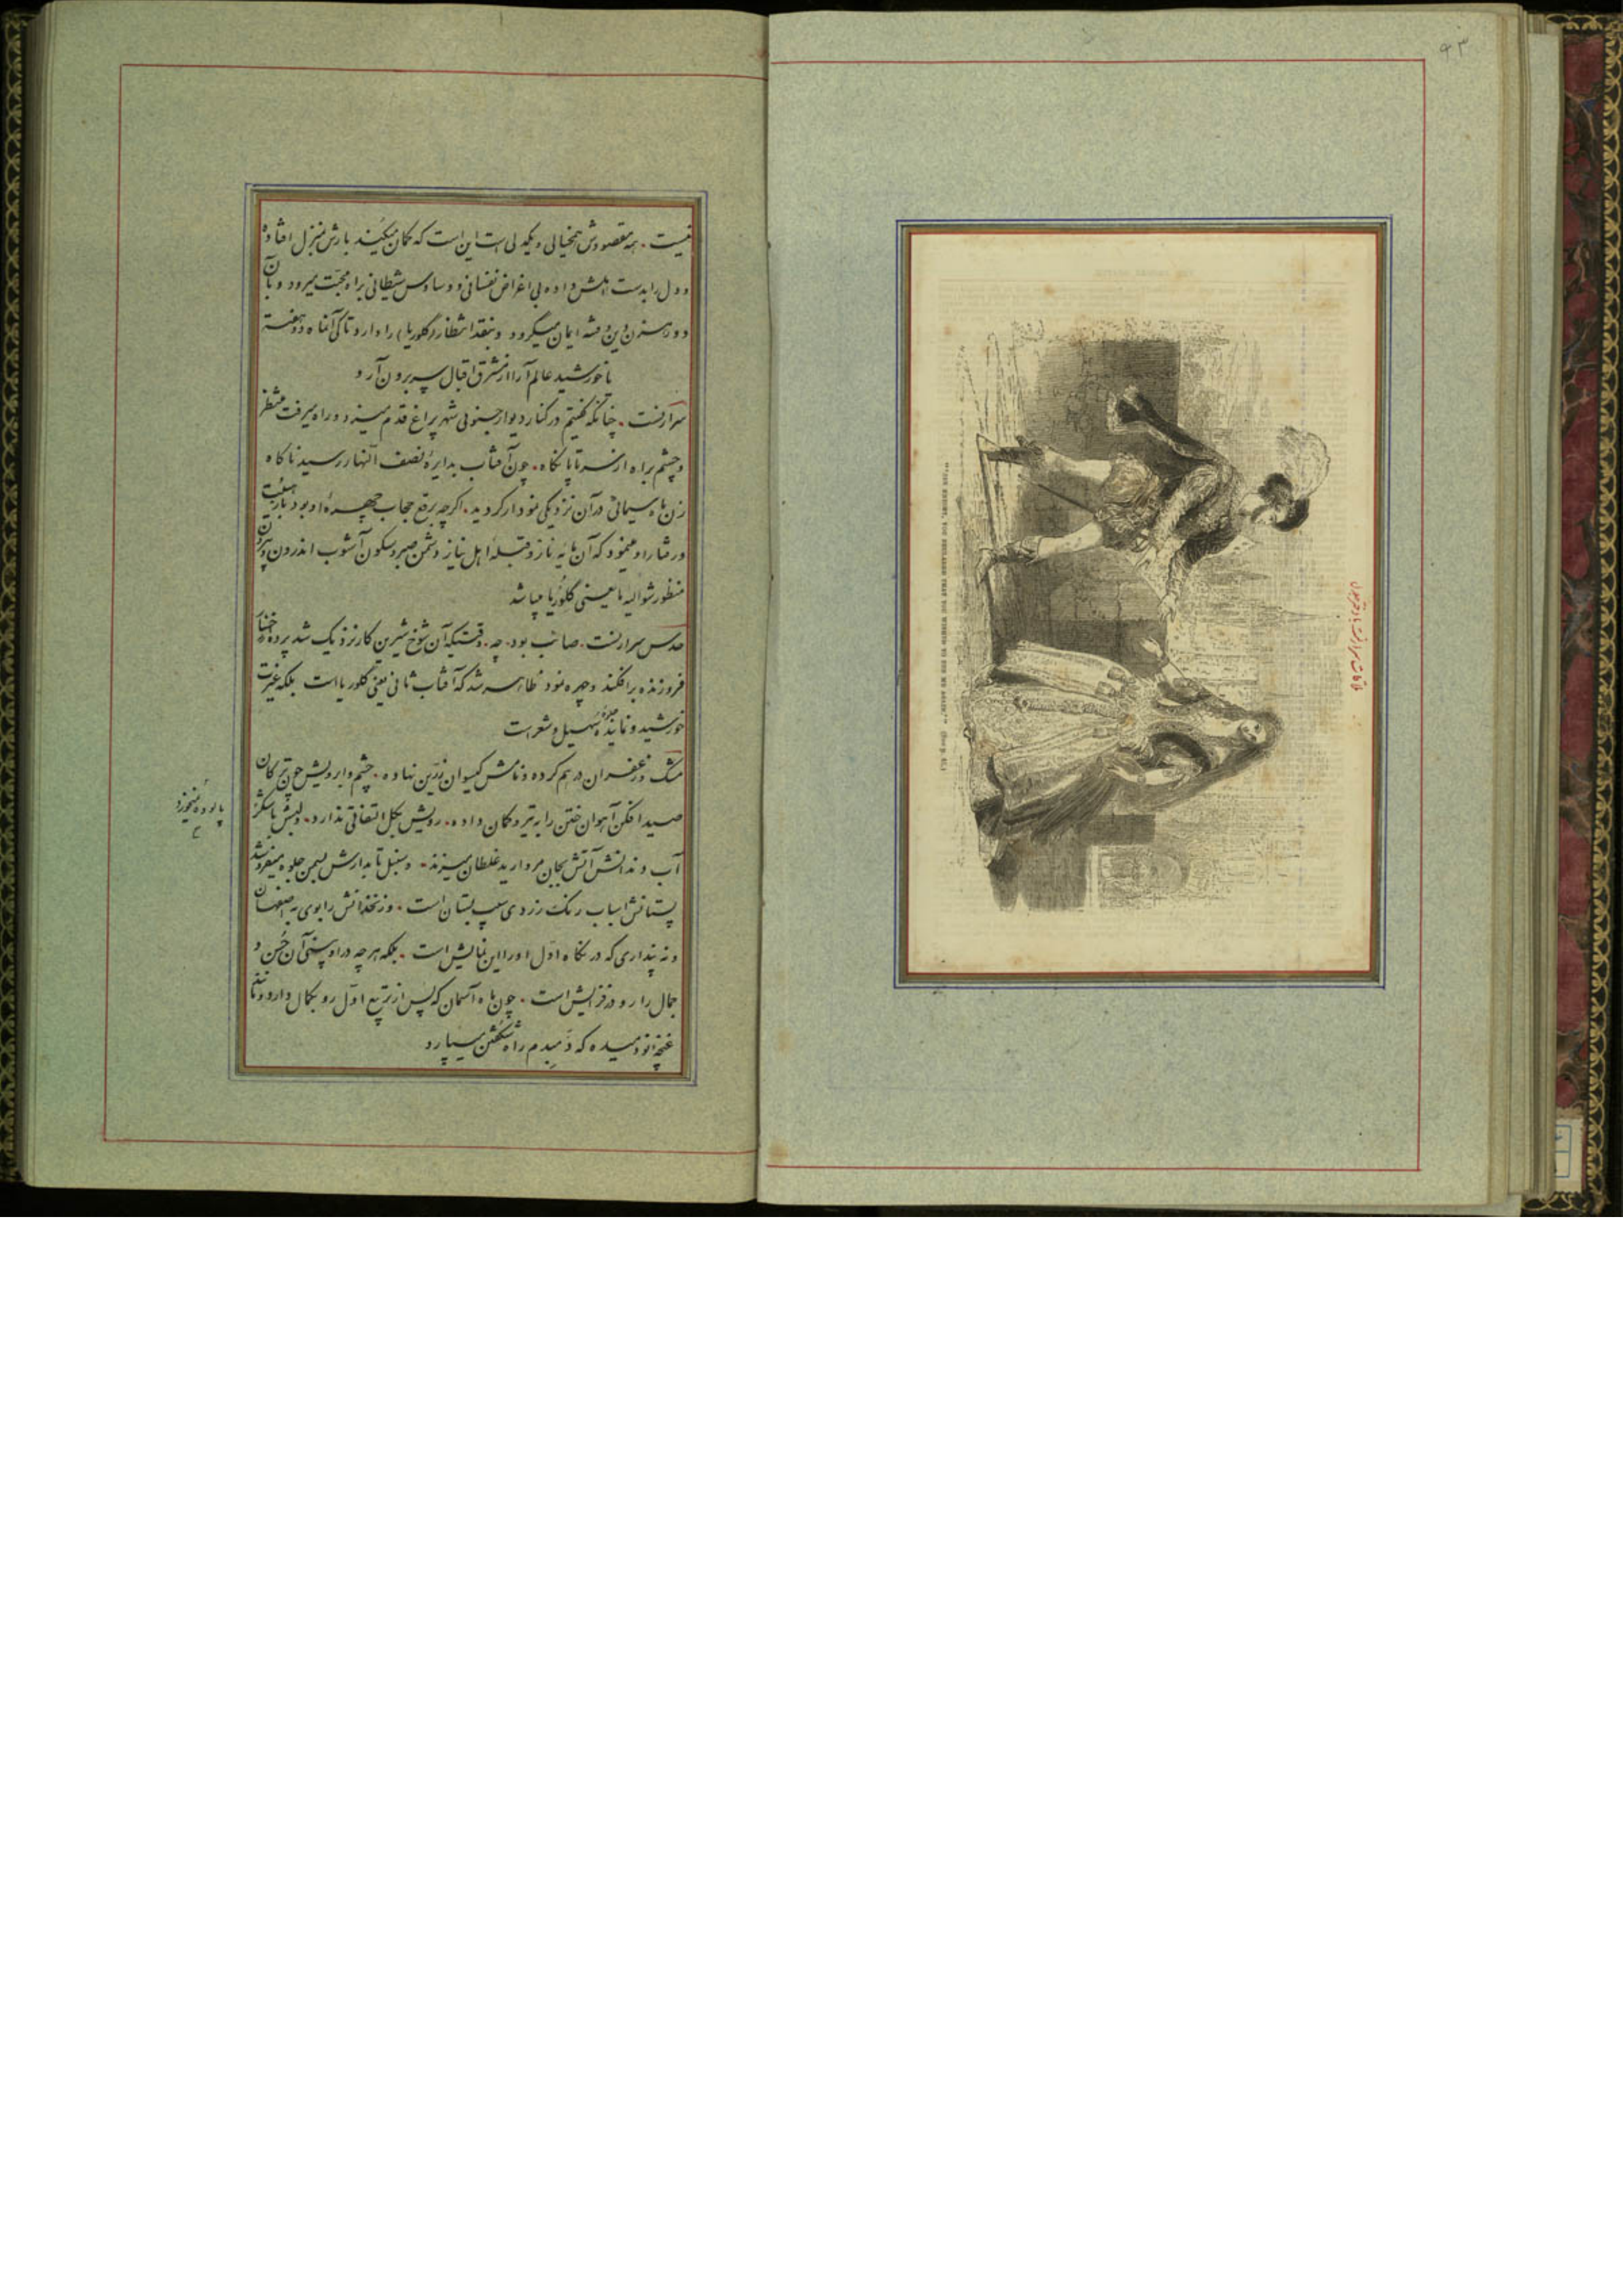 ۹۳
ملاقات سرارنست با دختر
نیست. همه مقصودش همخیالی و یکدلی است این است که گمان میکنند بارش بمنزل افتاده
و دل را بدست اهلش داده بی اغراض نفسانی و وساوس شیطانی براه محبت میرود و بآن
دو رهزن دین و فتنه ایمان میگرود و بنقد انتظار (گلوریا) را دارد تا کی آنماه دو هفته
یا خورشید عالم آرا از مشرق اقبال سر برون آرد
سرارنست. چنانکه گفتیم در کنار دیوار جنوبی شهر پراغ قدم میزد و راه میرفت منتظر
و چشم براه از سر تا پا نگاه. چون آفتاب بدایرهٔ نصف النهار رسید ناگاه
زن ماه سیمائی در آن نزدیکی نمودار گردید. اگرچه برقع حجاب چهرهٔ او بود باز هیئت
و رفتار او مینمود که آن مایهٔ ناز و قبلهٔ اهل نیاز دشمن صبر و سکون آشوب اندرون و بیرون
منظور شوالیه ما یعنی گلوریا میباشد
حدس سرارنست. صائب بود. چه. وقتیکه آن شوخ شیرین کار نزدیک شد پرده از رخسار
فروزنده برافکند و چهره نمود ظاهر شد که آفتاب ثانی یعنی گلوریا است بلکه غیرت
خورشید و نمایندهٔ جلوهٔ سهیل و شعر است
مشک و زعفران درهم کرده و نامش گیسوان زرین نهاده. چشم و ابرویش چون ترکان
صید افکن آهوان ختن را به تیر و کمان داده. رویش بگل التفاتی ندارد. و لبش با شکر
پالوده نمیخورد
آب دندانش آتش بجان مروارید غلطان میزند. و سنبل تابدارش بسمن جلوه میفروشد
پستانش اسباب رنگ زردی سیب بستان است. و زنخدانش را بوی به اصفهان
و نه پنداری که در نگاه اول او را این نمایش است. بلکه هرچه در او بینی آن حسن و
جمال را رو در فزایش است. چون ماه آسمان که پس از تربیع اول رو بکمال دارد و مانند
غنچه نو دمیده که دمبدم راه شکفتن سپارد